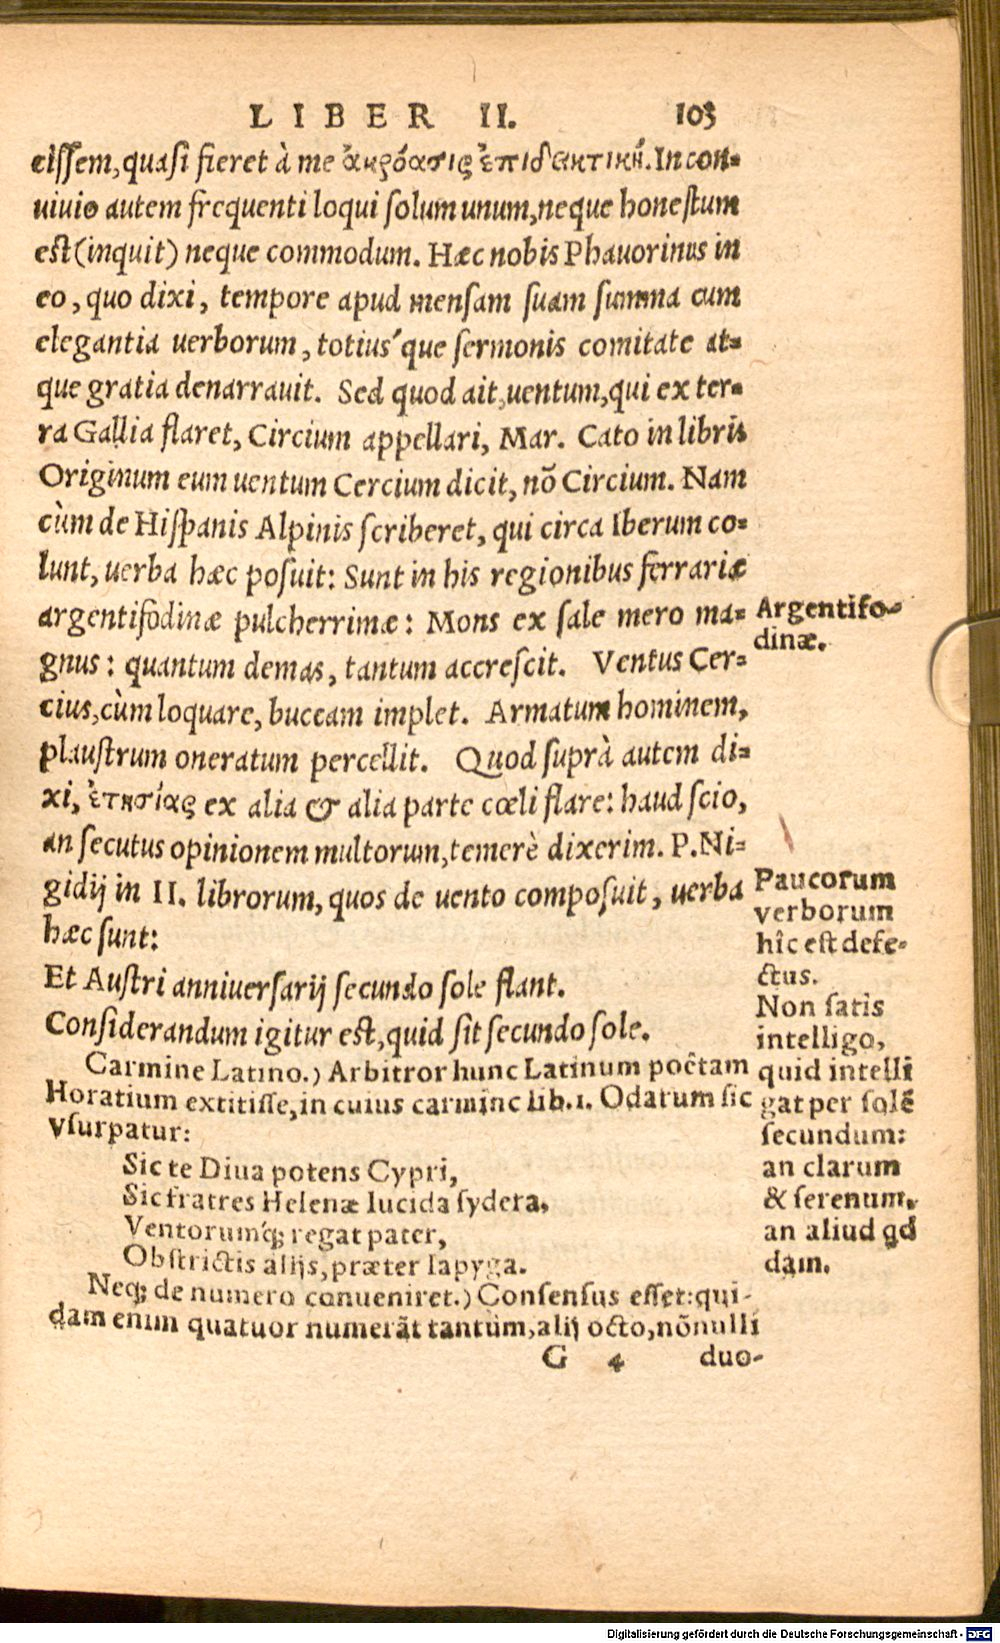 LIBER II. 103
cissem, quasi fieret à me ἀκρόασις ἐπιδεικτική. In con-
uiuio autem frequenti loqui solum unum, neque honestum
est (inquit) neque commodum. Hæc nobis Phauorinus in
eo, quo dixi, tempore apud mensam suam summa cum
elegantia uerborum, totius´que sermonis comitate at-
que gratia denarrauit. Sed quod ait, uentum, qui ex ter-
ra Gallia flaret, Circium appellari, Mar. Cato in libris
Originum eum uentum Cercium dicit, nō Circium. Nam
cùm de Hispanis Alpinis scriberet, qui circa Iberum co-
lunt, uerba hæc posuit: Sunt in his regionibus ferrariæ
argentifodinæ pulcherrimæ: Mons ex sale mero ma-
gnus: quantum demas, tantum accrescit. Ventus Cer-
cius, cùm loquare, buccam implet. Armatum hominem,
plaustrum oneratum percellit. Quod suprà autem di-
xi, ἐτησίας ex alia & alia parte cœli flare: haud scio,
an secutus opinionem multorum, temerè dixerim. P. Ni-
gidij in II. librorum, quos de uento composuit, uerba
hæc sunt:
Et Austri anniuersarij secundo sole flant.
Considerandum igitur est, quid sit secundo sole.
Carmine Latino.) Arbitror hunc Latinum poëtam
Horatium extitisse, in cuius carmine lib. 1. Odarum sic
vsurpatur:
Sic te Diua potens Cypri,
Sic fratres Helenæ lucida sydera,
Ventorumq́; regat pater,
Obstrictis alijs, præter Iapyga.
Neq; de numero conueniret.) Consensus esset: qui-
dam enim quatuor numerāt tantùm, alij octo, nōnulli
G 4 duo-
Argentifo-
dinæ.
Paucorum
verborum
hîc est defe-
ctus.
Non satis
intelligo,
quid intelli
gat per solē
secundum:
an clarum
& serenum,
an aliud qd
dam.
Digitalisierung gefördert durch die Deutsche Forschungsgemeinschaft - DFG